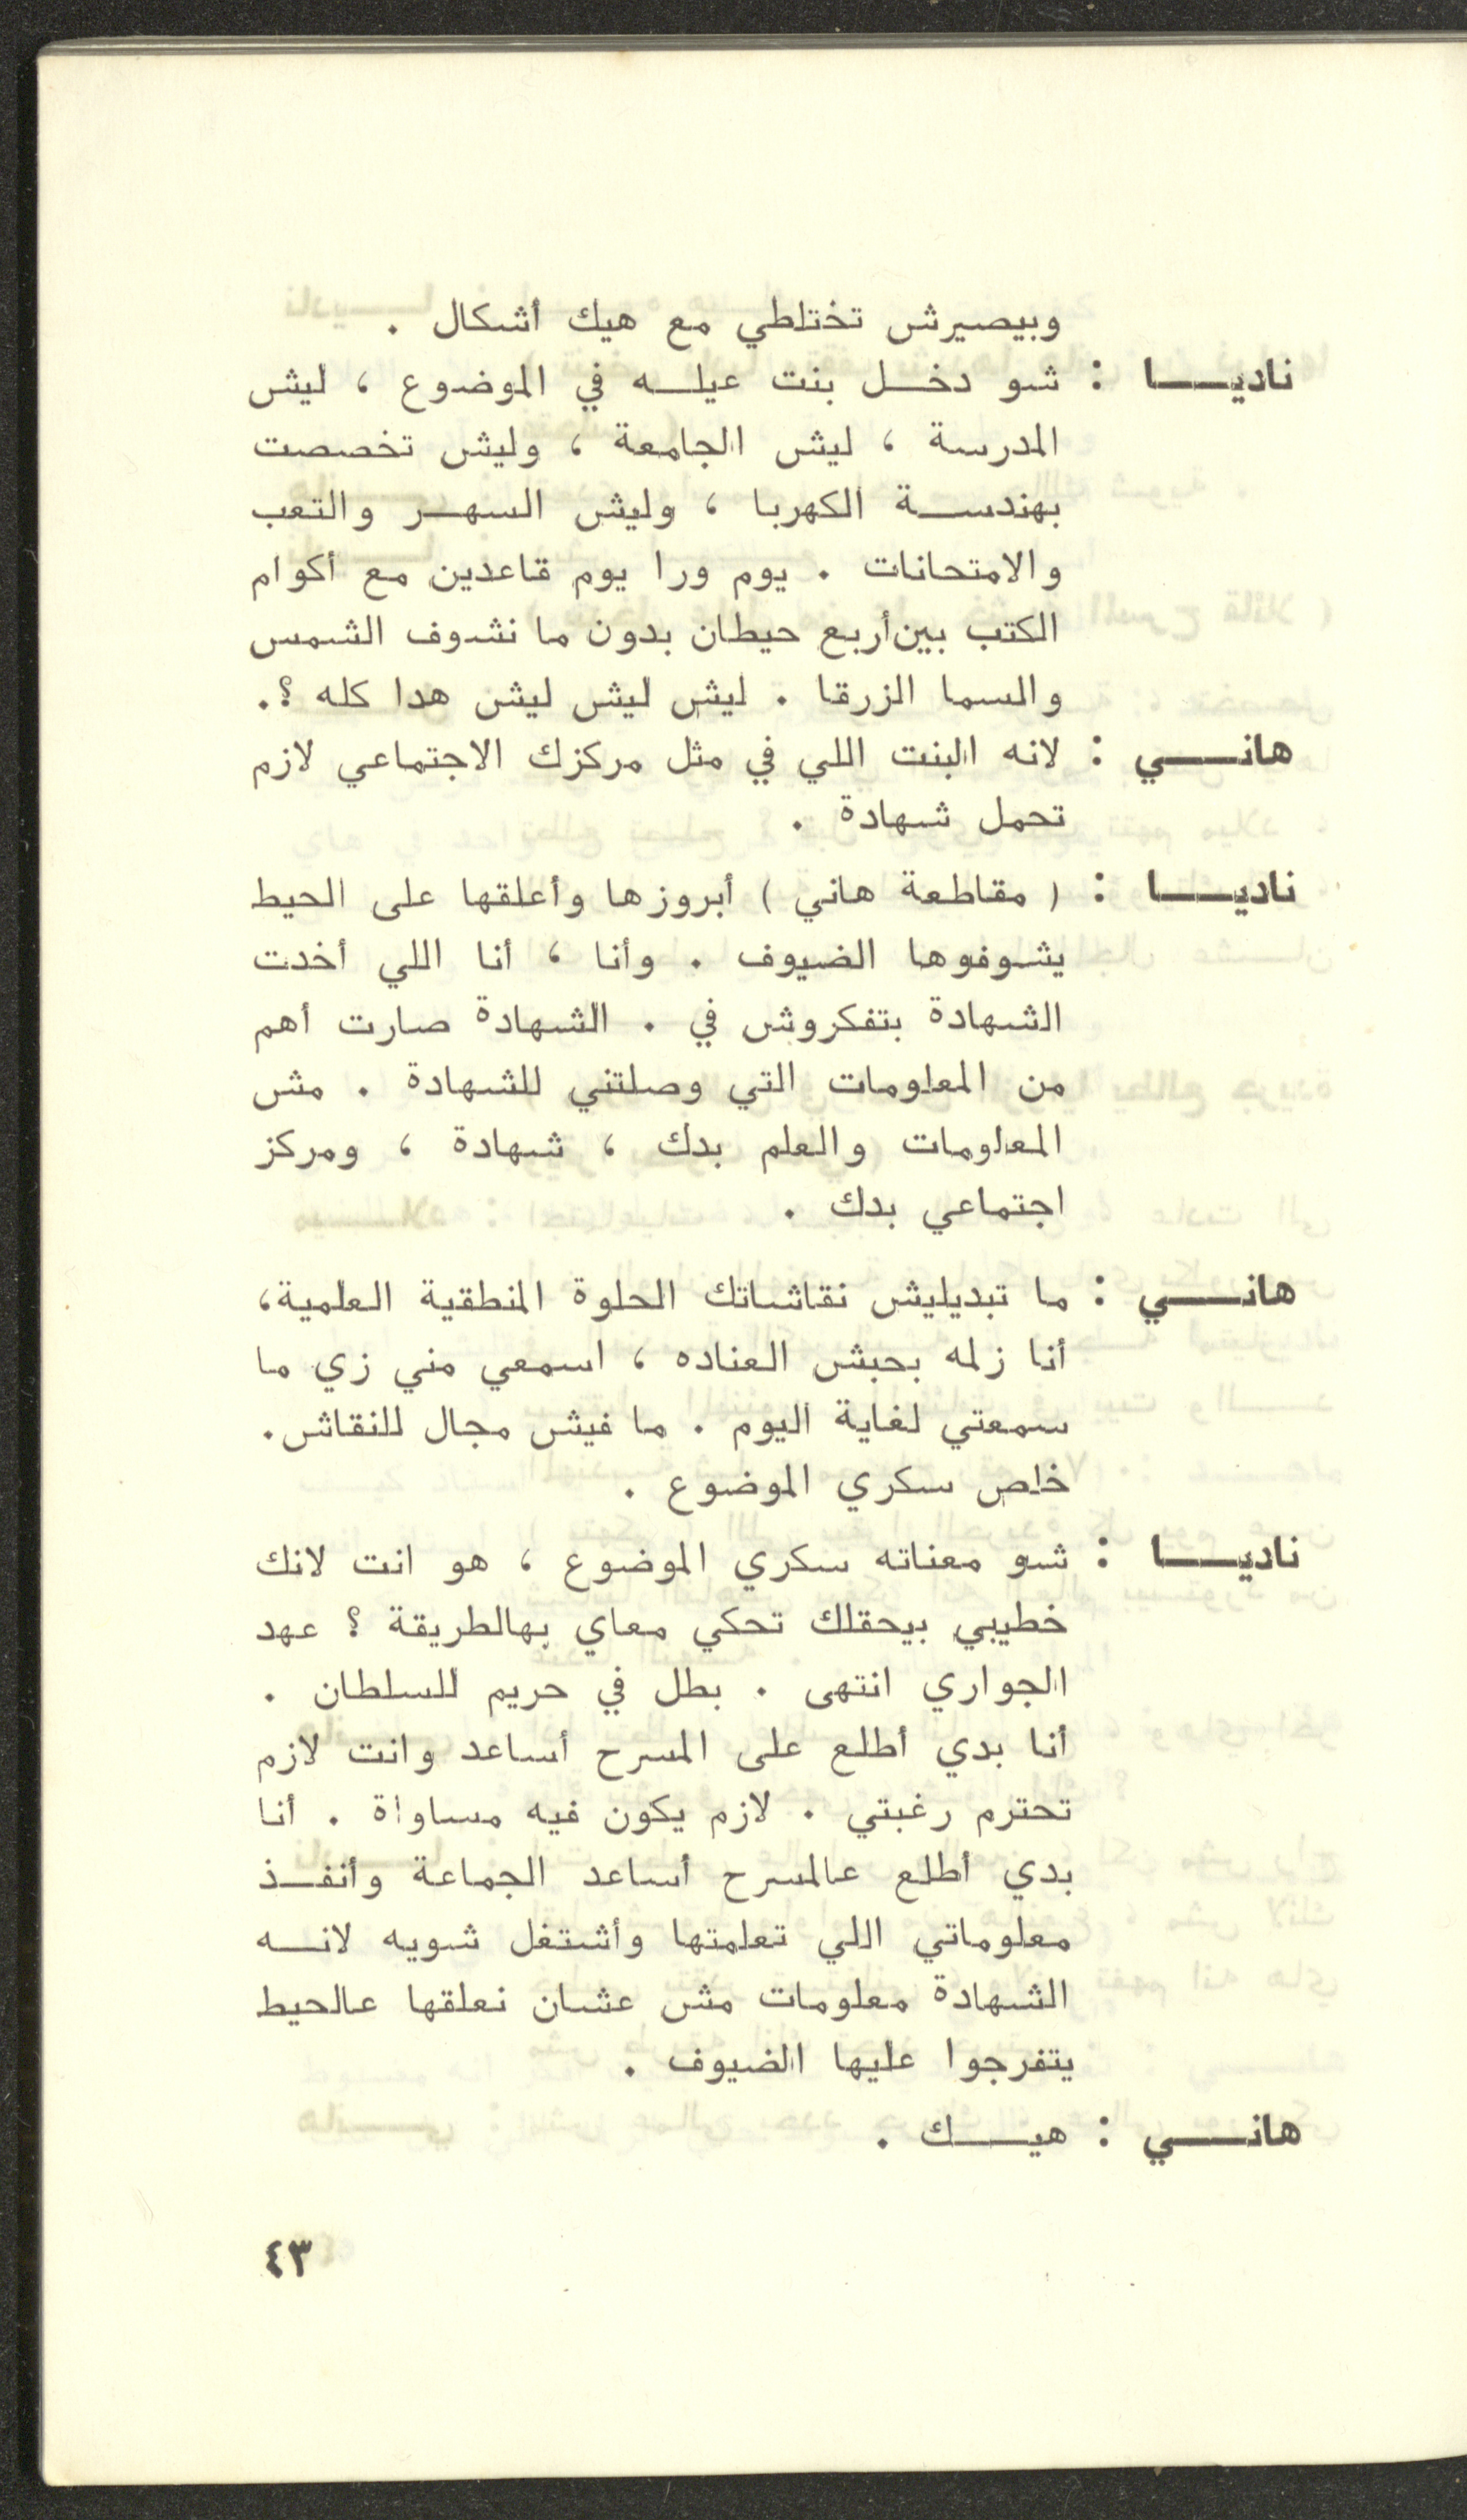 وبيصيرش تختلطي مع هيك أشكال .
ناديا : شو دخل بنت عيله في الموضوع ، ليش
المدرسة ، ليش الجامعة ، وليش تخصصت
بهندسة الكهربا ، وليش السهر والتعب
والامتحانات . يوم ورا يوم قاعدين مع أكوام
الكتب بين أربع حيطان بدون ما نشوف الشمس
والسما الزرقا . ليش ليش ليش هدا كله ؟.
هاني : لانه البنت اللي في مثل مركزك الاجتماعي لازم
تحمل شهادة .
ناديا : ( مقاطعة هاني ) أبروزها وأعلقها على الحيط
يشوفوها الضيوف . وأنا ، أنا اللي أخدت
الشهادة بتفكروش في . الشهادة صارت أهم
من المعلومات التي وصلتني للشهادة . مش
المعلومات والعلم بدك ، شهادة ، ومركز
اجتماعي بدك .
هاني : ما تبديليش نقاشاتك الحلوة المنطقية العلمية،
أنا زلمه بحبش العناده ، اسمعي مني زي ما
سمعتي لغاية اليوم . ما فيش مجال للنقاش.
خلص سكري الموضوع .
ناديا : شو معناته سكري الموضوع ، هو انت لانك
خطيبي بيحقلك تحكي معاي بهالطريقة ؟ عهد
الجواري انتهى . بطل في حريم للسلطان .
أنا بدي أطلع على المسرح أساعد وانت لازم
تحترم رغبتي . لازم يكون فيه مساواة . أنا
بدي أطلع عالمسرح أساعد الجماعة وأنفذ
معلوماتي اللي تعلمتها وأشتغل شويه لانه
الشهادة معلومات مش عشان نعلقها عالحيط
يتفرجوا عليها الضيوف .
هاني : هيك .
٤٣